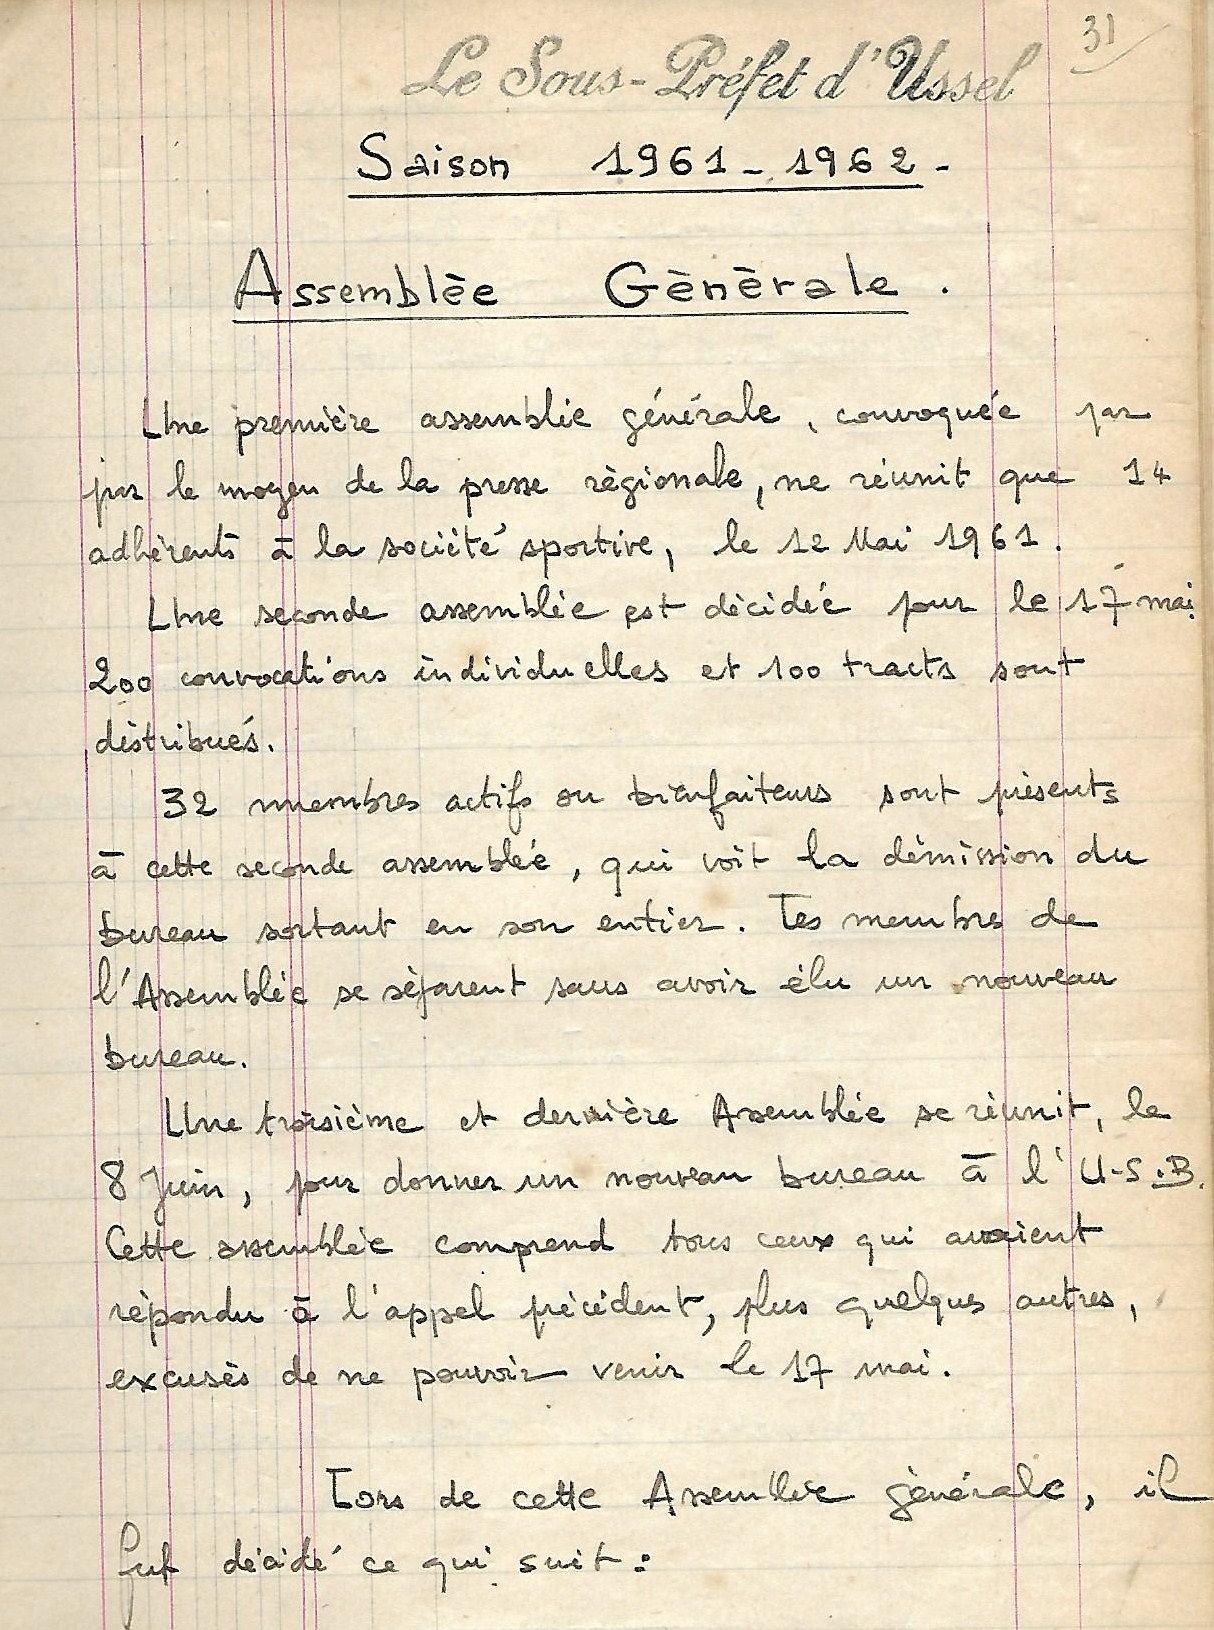 31
Le Sous-Préfet d'Ussel
Saison 1961-1962-
Assemblée Générale.
Une première assemblée générale, convoquée par
par le moyen de la presse régionale, ne réunit que 14
adhérents à la société sportive, le 12 Mai 1961.
Une seconde assemblée est décidée pour le 17 mai.
200 convocations individuelles et 100 tracts sont
distribués.
32 membres actifs ou bienfaiteurs sont présents
à cette seconde assemblée, qui voit la démission du
bureau sortant en son entier. Les membres de
l'Assemblée se séparent sans avoir élu un nouveau
bureau.
Une troisième et dernière Assemblée se réunit, le
8 Juin, pour donner un nouveau bureau à l'U-S.B.
Cette assemblée comprend tous ceux qui avaient
répondu à l'appel précédent, plus quelques autres,
excusés de ne pouvoir venir le 17 mai.
Lors de cette Assemblée générale, il
fut décidé ce qui suit :